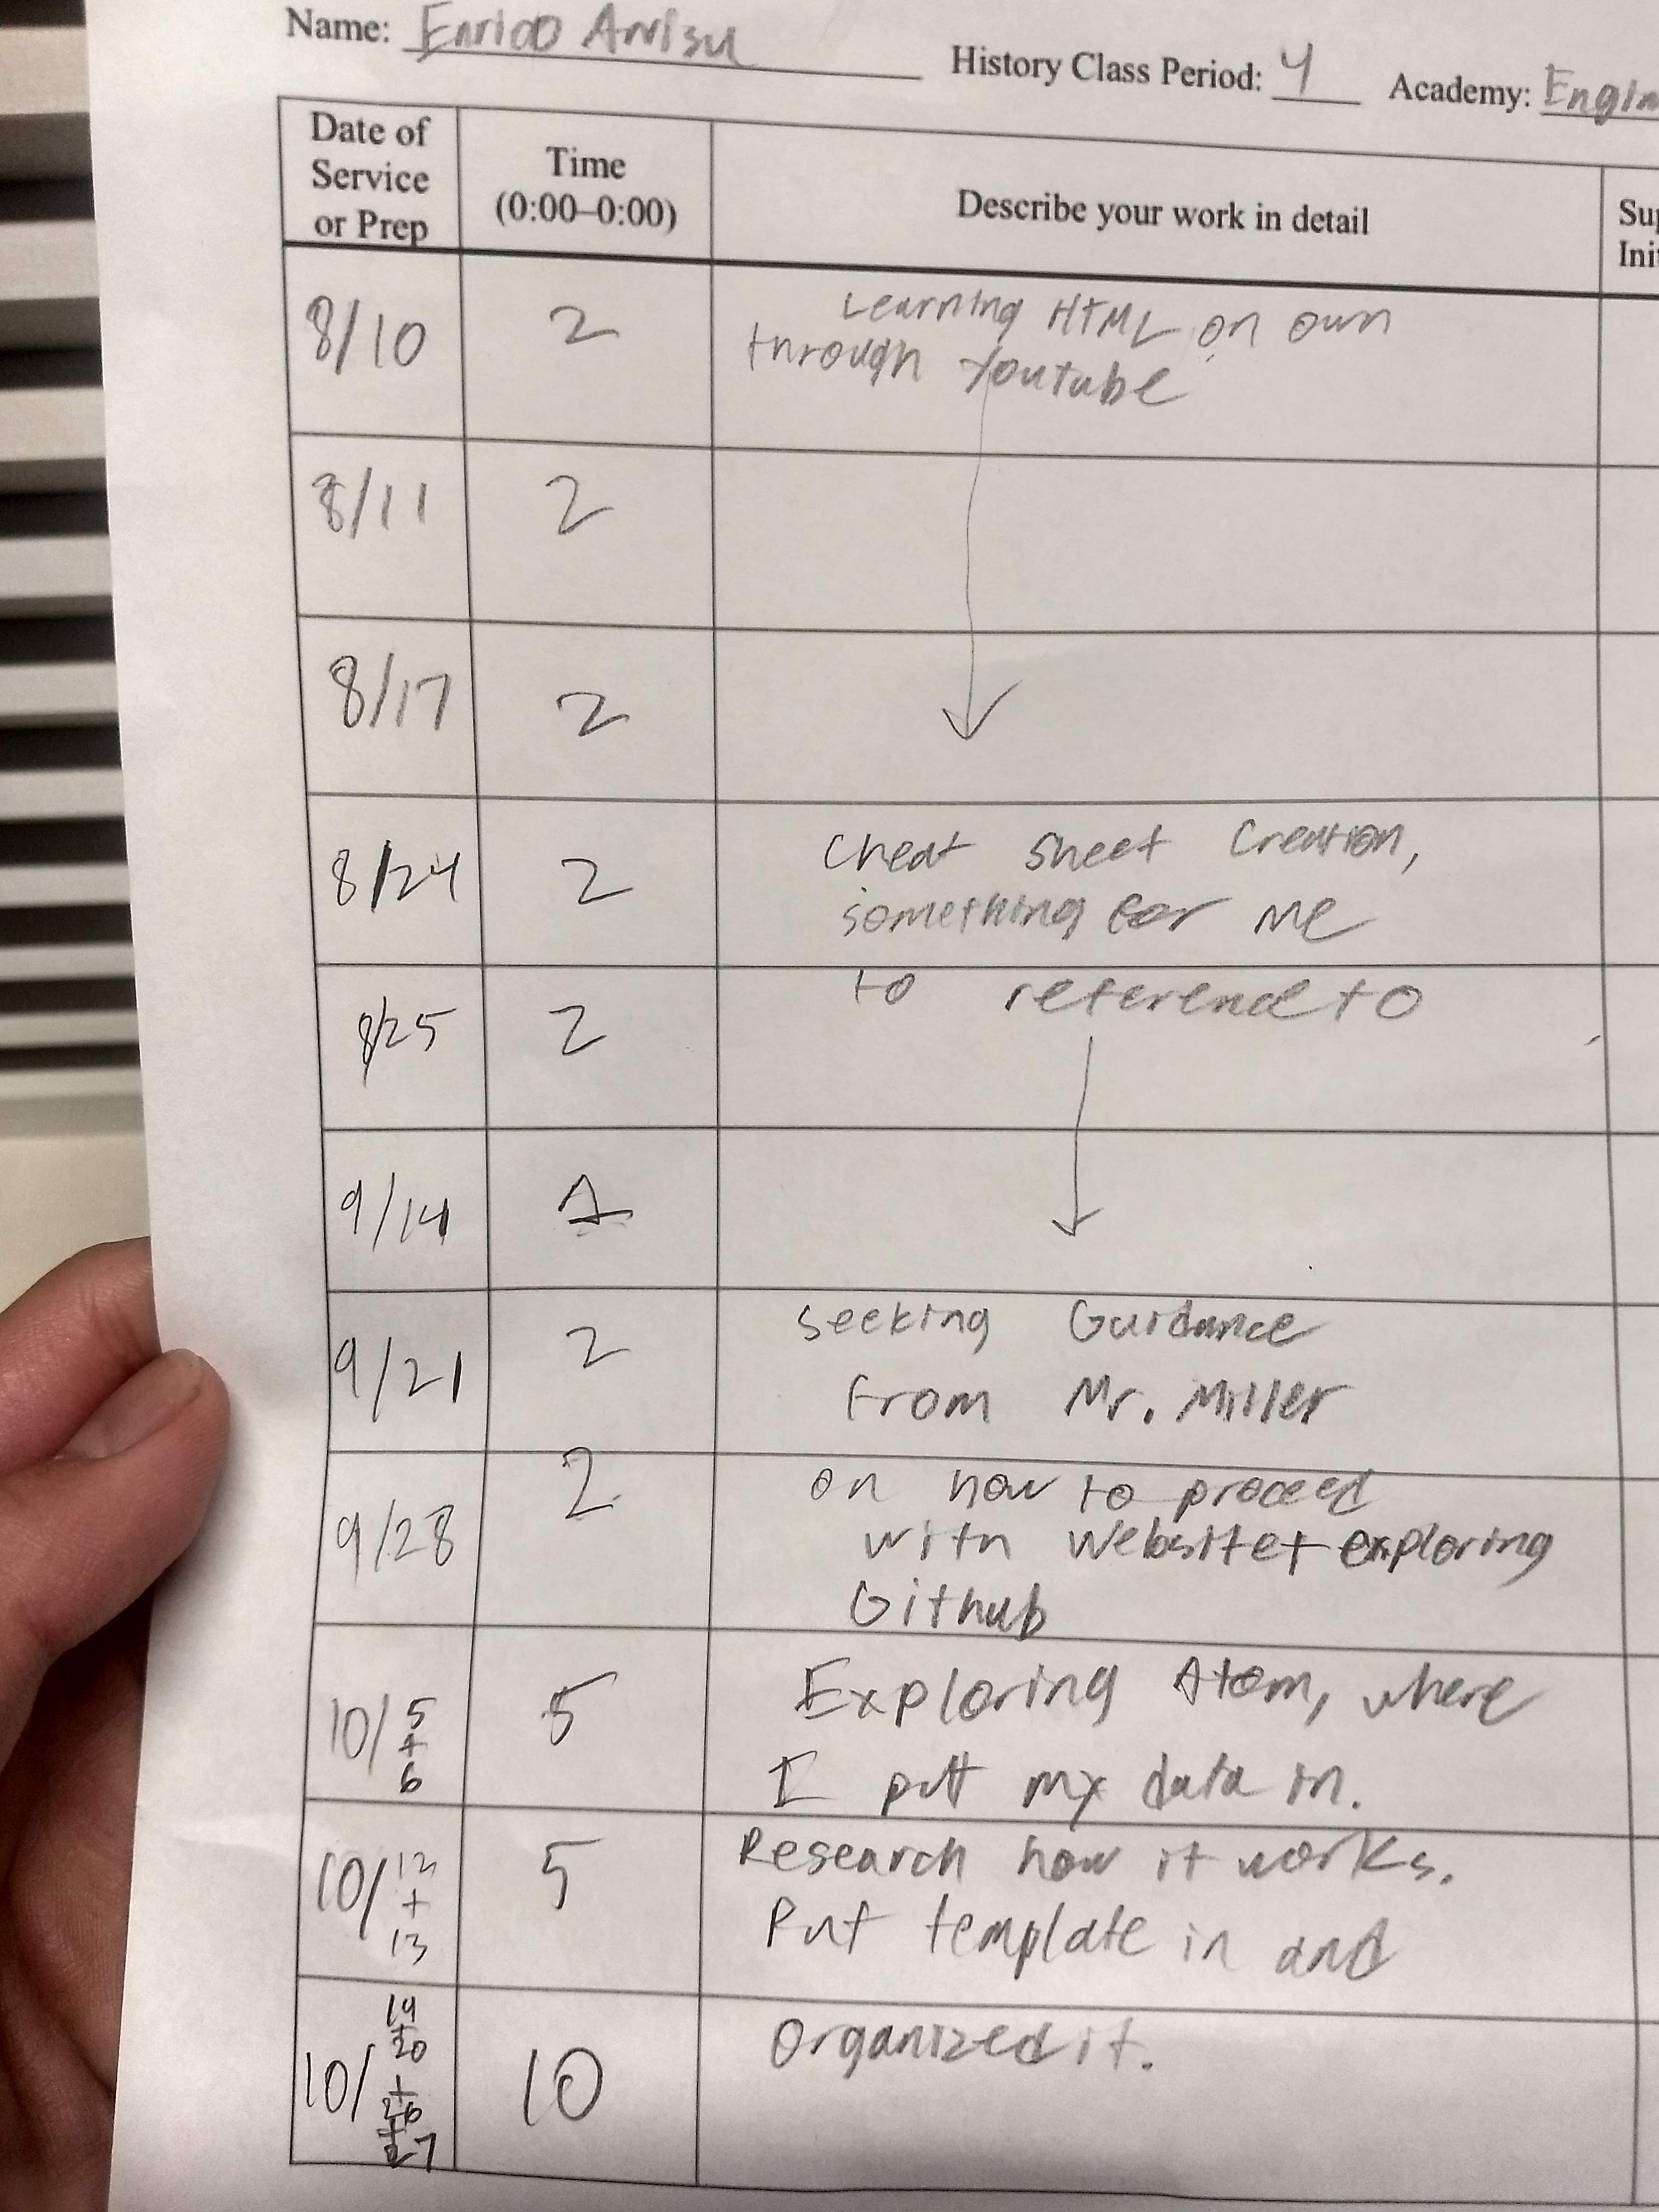 Name: Enrico
History Class Period: 4 Academy: Engin
Date of
Service
or Prep
Time
(0:00–0:00)
Describe your work in detail
Sup
Init
8/10 2 Learning HTML on own
through Youtube
8/11 2
8/17 2
8/24 2 Cheat sheet Creation,
something for me
8/25 2 to reference to
9/14
9/21 2 seeking Guidance
from Mr. Miller
9/28 2 on how to proceed
with website + exploring
Github
10/5 + 6 5 Exploring Atom, where
I put my data in.
10/12 + 13 5 Research how it works.
Put template in and
10/19 + 20 + 26 + 27 10 Organized it.